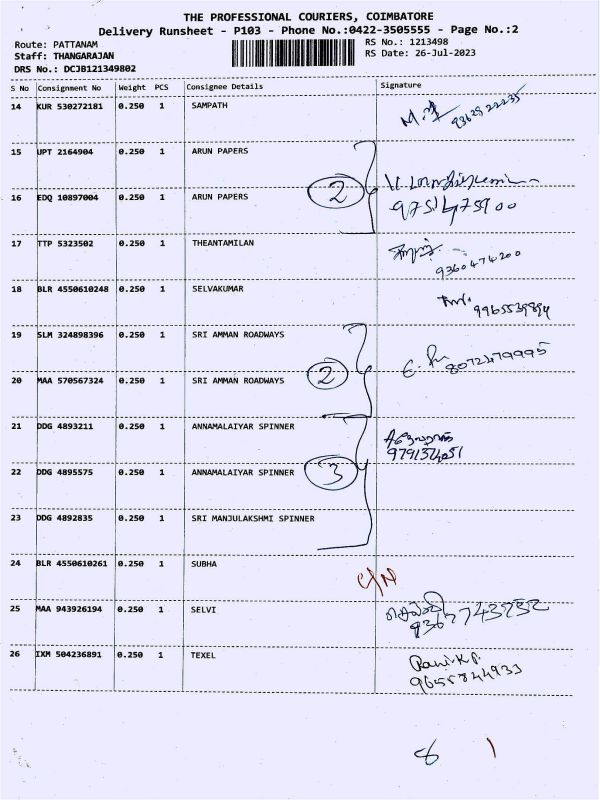 THE PROFESSIONAL COURIERS, COIMBATORE
Delivery Runsheet - P103 - Phone No.:0422-3505555 - Page No.:2
Route: PATTANAM
Staff: THANGARAJAN
DRS No.: DCJB121349802
RS No.: 1213498
RS Date: 26-Jul-2023
S No Consignment No Weight PCS Consignee Details Signature
14 KUR 530272181 0.250 1 SAMPATH
15 UPT 2164904 0.250 1 ARUN PAPERS
2
16 EDQ 10897004 0.250 1 ARUN PAPERS
17 TTP 5323502 0.250 1 THEANTAMILAN
9360474200
18 BLR 4550610248 0.250 1 SELVAKUMAR
19 SLM 324898396 0.250 1 SRI AMMAN ROADWAYS
8072479995
20 MAA 570567324 0.250 1 SRI AMMAN ROADWAYS
2
21 DDG 4893211 0.250 1 ANNAMALAIYAR SPINNER
22 DDG 4895575 0.250 1 ANNAMALAIYAR SPINNER
3
23 DDG 4892835 0.250 1 SRI MANJULAKSHMI SPINNER
24 BLR 4550610261 0.250 1 SUBHA
C/N
25 MAA 943926194 0.250 1 SELVI
செல்வி
9367743252
26 IXM 504236891 0.250 1 TEXEL
Rani.K.P.
9655744933
8 1